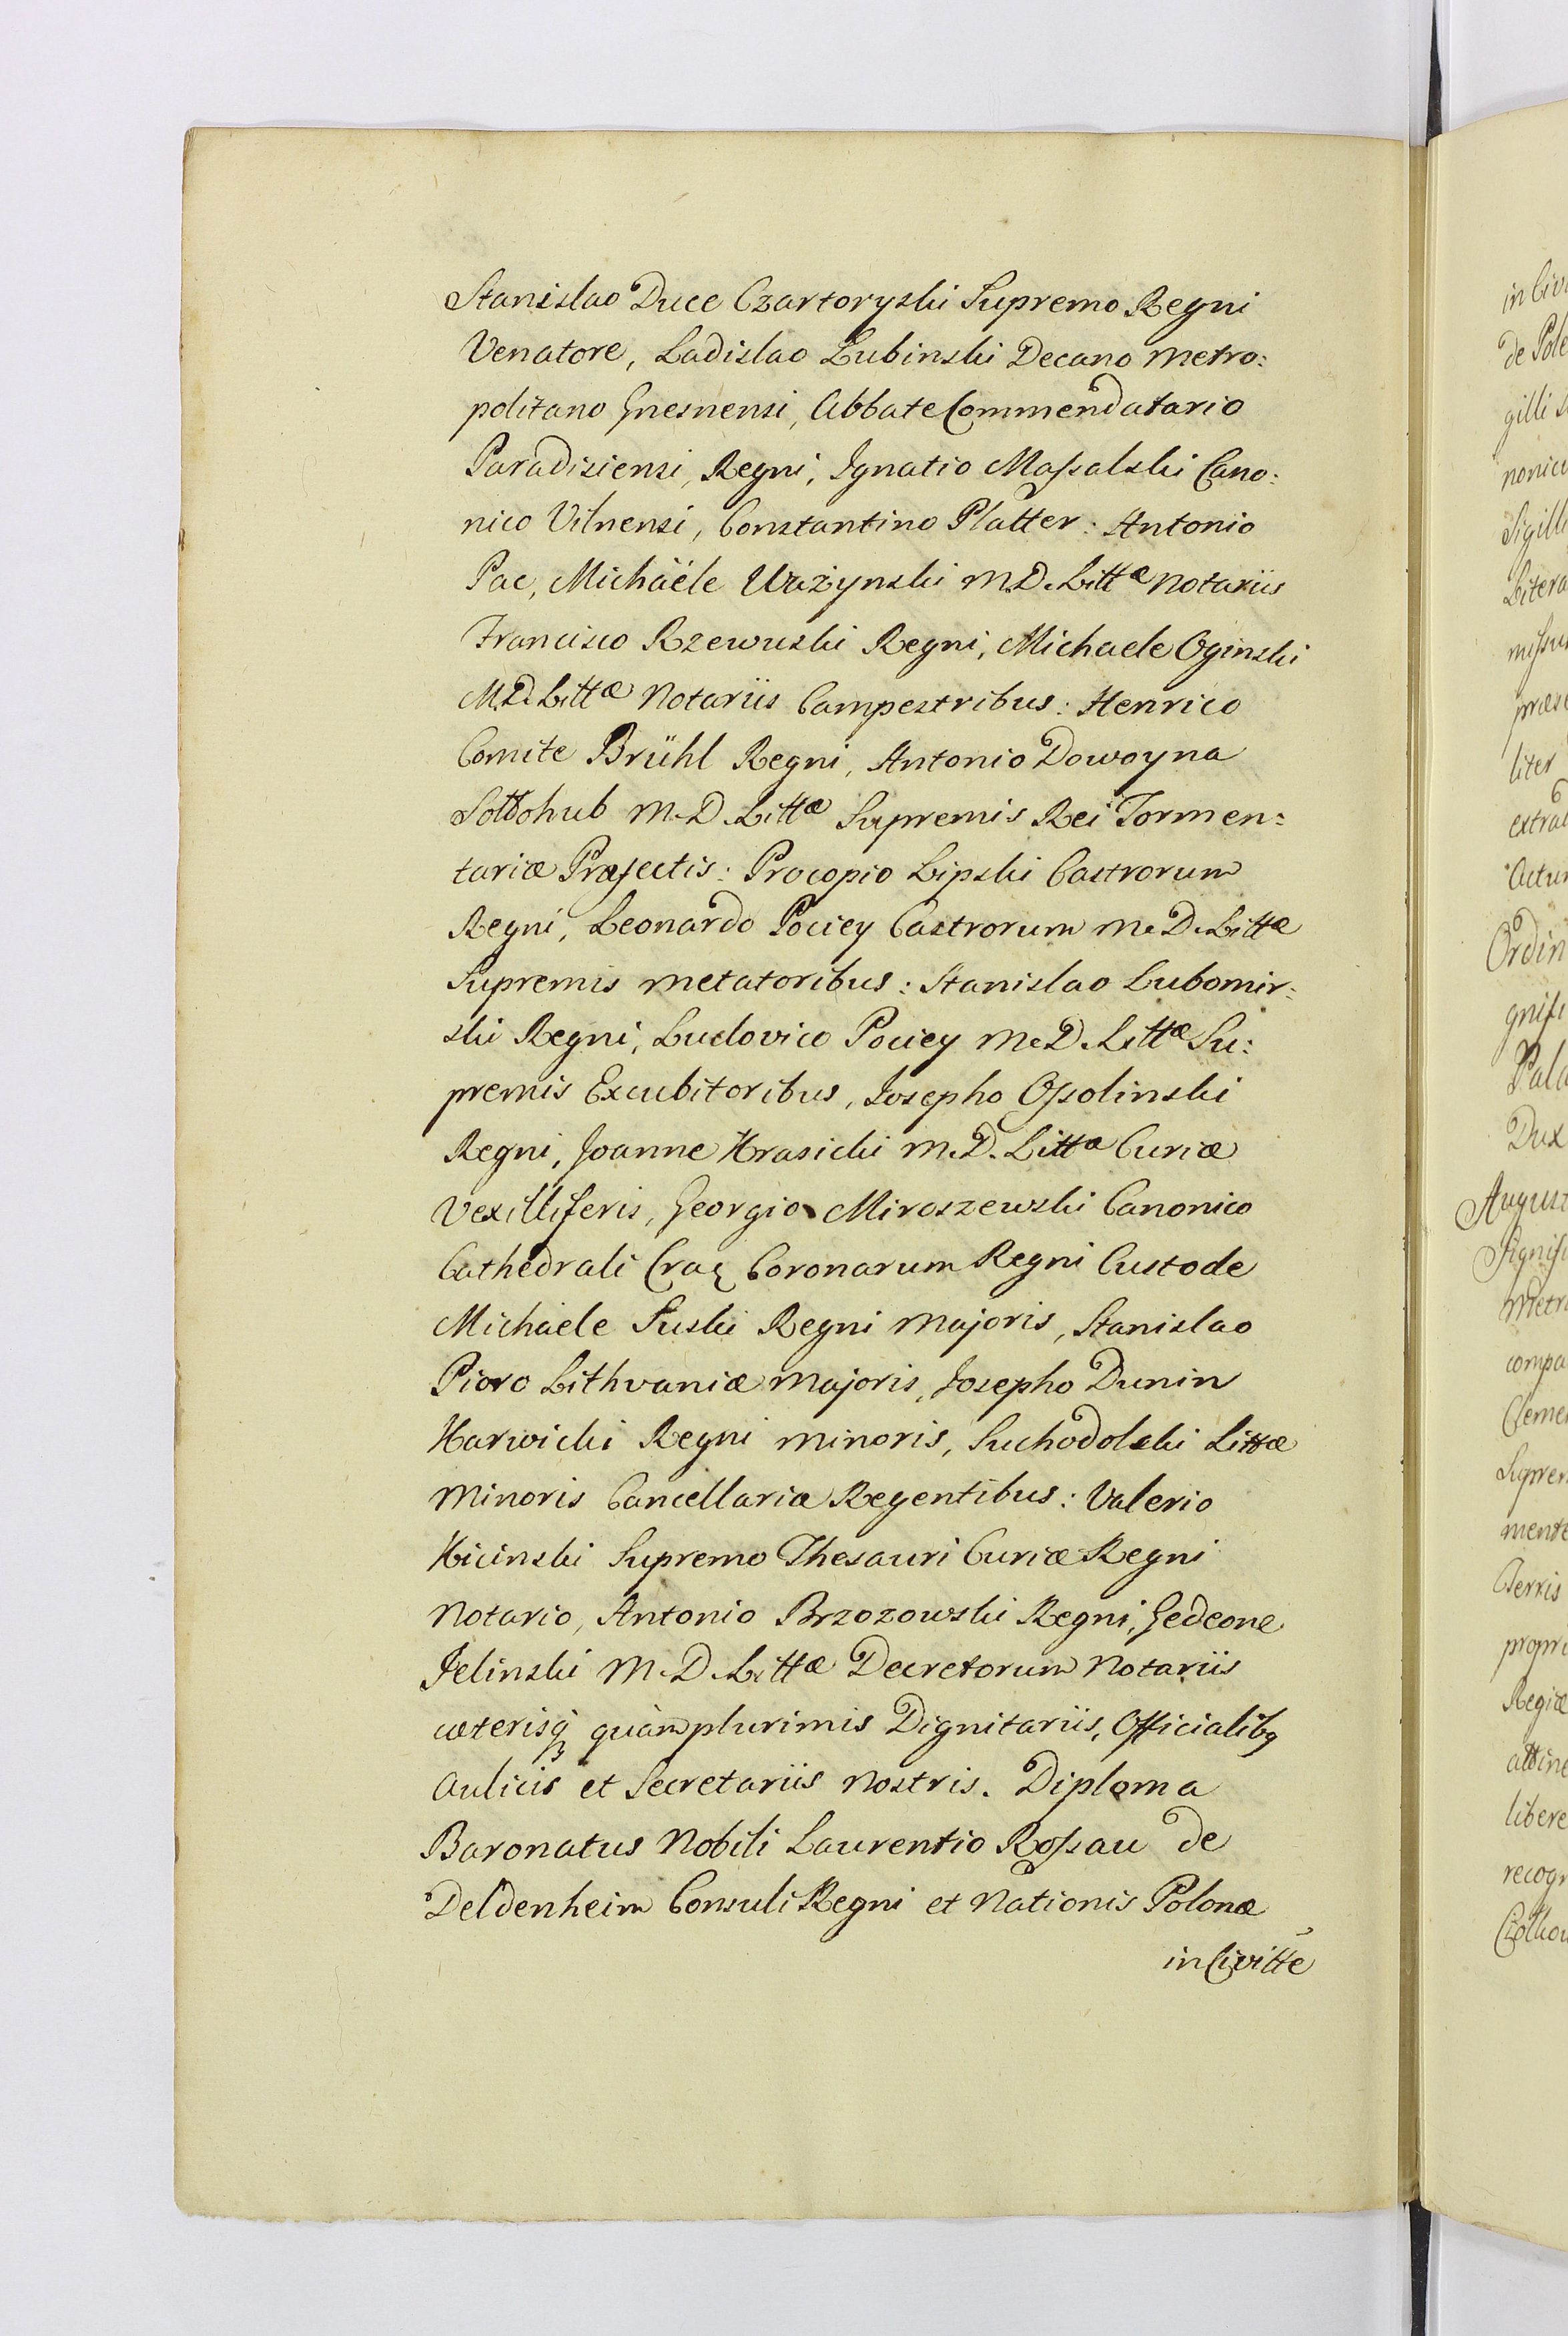 Stanislao Duce Czartoryski Supremo Regni
Venatore, Ladislao Lubinski Decano Metro:
politano Gnesnensi, Abbate Commendatario
Paradisiensi, Regni, Ignatio Maſsalski Cano:
nico Vilnensi, Constantino Platter: Antonio
Pac, Michaële Ważynski M.D. Littæ Notariis
Francisco Rzewuski Regni, Michaele Oginski
M.D. Littæ Notariis Campestribus: Henrico
Comite Brühl Regni, Antonio Dowoyna
Sołłohub M.D. Littæ Supremis Rei Tormen:
tariæ Præfectis: Procopio Lipski Castrorum
Regni, Leonardo Pociey Castrorum M.D. Littæ
Supremis Metatoribus: Stanislao Lubomir:
ski Regni, Ludovico Pociey M.D. Littæ Su:
premis Excubitoribus, Josepho Oſsolinski
Regni, Joanne Krasicki M.D. Littæ Curiæ
Vexilliferis, Georgio Miroszewski Canonico
Cathedrali Crac Coronarum Regni Custode
Michaele Suski Regni Majoris, Stanislao
Pioro Lithvaniæ Majoris, Josepho Dunin
Karwicki Regni Minoris, Suchodolski Littæ
Minoris Cancellariæ Regentibus: Valerio
Kicinski Supremo Thesauri Curiæ Regni
Notario, Antonio Brzozowski Regni, Gedeone
Jelinski M.D. Littæ Decretorum Notariis
cæterisq quàm plurimis Dignitariis, Officialibq
Aulicis et Secretariis Nostris. Diploma
Baronatus Nobili Laurentio Roſsau de
Deldenheim Consuli Regni et Nationis Polonæ
in Civitte
in Civi
de Pole
gilli
nonic
Sigilli
Litera
præs
liter
extra
Actu
Ordin
gnifi
Pala
Dux
August
Signifi
Metro
compa
Cleme
Suprem
mente
Terris
propri
Regiæ
attine
libere
recogn